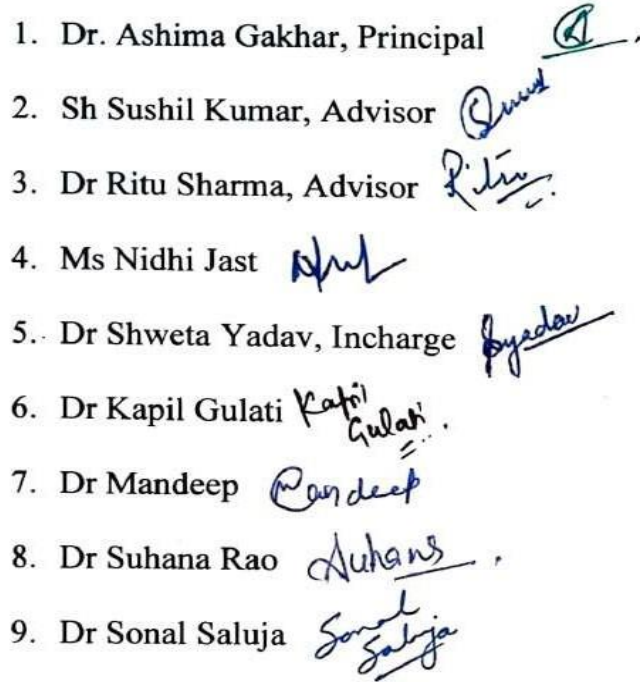 1. Dr. Ashima Gakhar, Principal
2. Sh Sushil Kumar, Advisor
3. Dr Ritu Sharma, Advisor Ritu
4. Ms Nidhi Jast
5. Dr Shweta Yadav, Incharge Syadav
6. Dr Kapil Gulati Kapil Gulati
7. Dr Mandeep Mandeep
8. Dr Suhana Rao Suhans
9. Dr Sonal Saluja Sonal Saluja